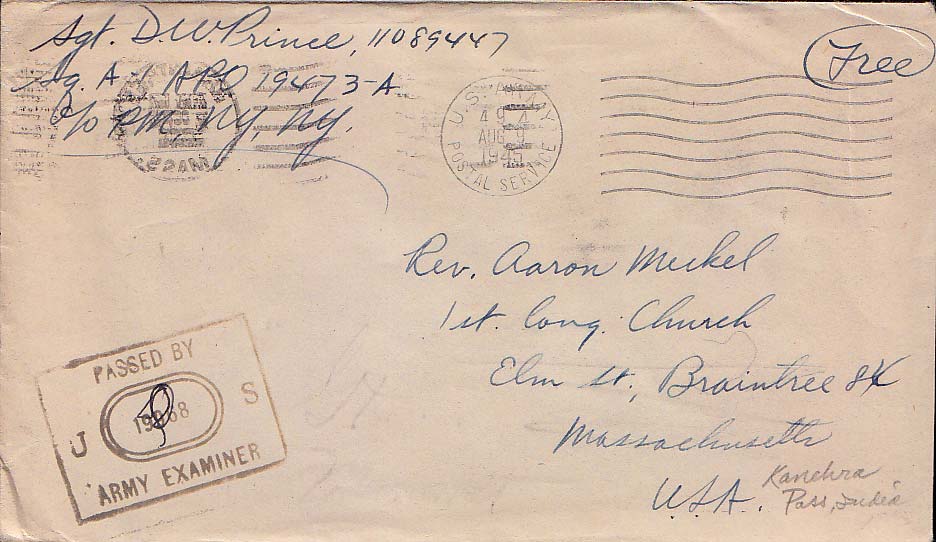 Sgt. D.W. Prince, 11089447
Free
Sq. A-1 APO 19473-A
c/o PM, NY NY.
U.S. ARMY
AUG 9
1945
POSTAL SERVICE
Rev. Aaron Meckel
1st. Cong. Church
Elm St, Braintree 84
Massachusetts
U.S.A.
Kanehra
Pass, India
PASSED BY
U S
ARMY EXAMINER